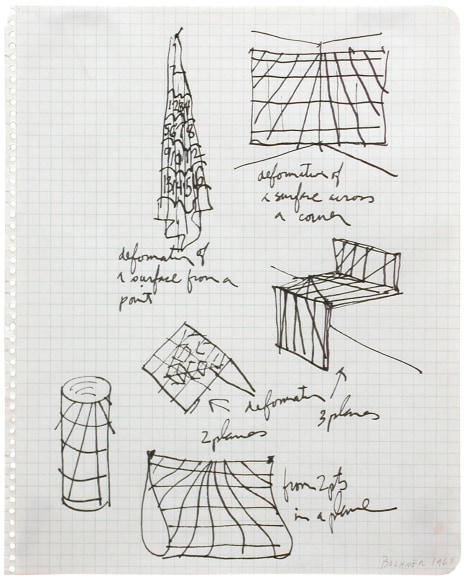 1234
5678
9101112
deformation of
a surface across
a corner
deformation of
a surface from a
point
deformation
2 planes
3 planes
from 2 pts
in a plane
BOCHNER 196